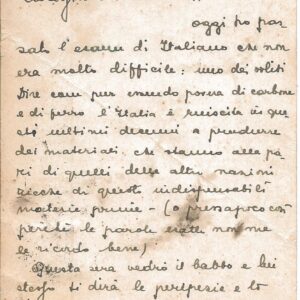 oggi ho pas
sato l'esame di Italiano che non
era molto difficile: uno dei soliti
Dire com pur essendo povera di carbone
e di ferro l'Italia è riuscita in que
sti ultimi decenni a produrre
dei materiali che stanno alla pa
ri di quelli delle altre nazioni
ricche di queste indispensabili
materie prime - (o pressapoco così
perchè le parole esatte non me
le ricordo bene)
Questa sera vedrò il babbo e lui
stesso ti dirà le peripesie e lo